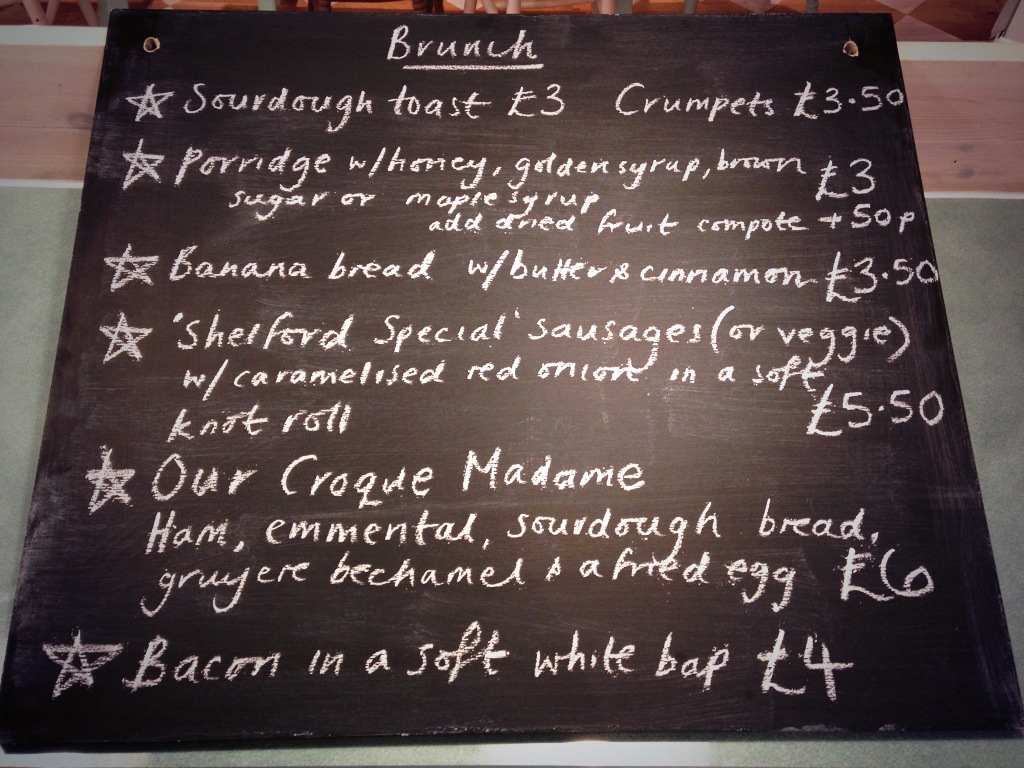 Brunch
Sourdough toast £3 Crumpets £3.50
Porridge w/honey, golden syrup, brown £3
sugar or maple syrup
add dried fruit compote +50p
Banana bread w/butter & cinnamon £3.50
'Shelford Special' sausages (or veggie)
w/caramelised red onion in a soft
knot roll £5.50
Our Croque Madame
Ham, emmental, sourdough bread,
gruyere bechamel & a fried egg £6
Bacon in a soft white bap £4